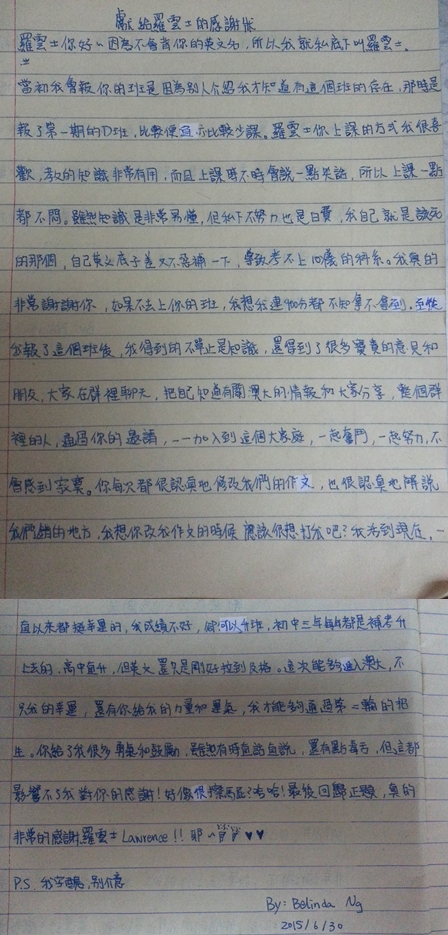 獻給羅雲士的感謝狀
羅雲士你好~因為不會寫你的英文名，所以我就私底下叫羅雲士。
當初我會報你的班是因為別人介紹我才知道有這個班的存在，那時是
報了第一期的D班，比較便宜亦比較少課。羅雲士你上課的方式我很喜
歡，教的知識非常有用，而且上課時不時會說一點笑話，所以上課一點
都不悶。雖然知識是非常易懂，但私下不努力也是白費，我自己就是該死
的那個，自己英文底子差又不惡補一下，導致考不上心儀的科系。我真的
非常謝謝你，如果不去上你的班，我想我連400分都不知拿不拿得到，至從
我報了這個班後，我得到的不單止是知識，還得到了很多寶貴的意見和
朋友，大家在群裡聊天，把自己知道有關澳大的情報和大家分享，整個群
裡的人，通過你的邀請，一一加入到這個大家庭，一起奮鬥，一起努力，不
會感到寂寞。你每次都很認真地修改我們的作文，也很認真地解說
我們錯的地方，我想你改我作文的時候應該很想打我吧？我活到現在，一
直以來都挺幸運的，我成績不好，卻可以升班，初中三年每年都是補考升
上去的，高中直升，但英文還只是剛好拉到及格。這次能夠進入澳大，不
只我的幸運，還有你給我的力量和運氣，我才能夠通過第二輪的招
生。你給了我很多勇氣和鼓勵，雖然有時直話直說，還有點毒舌，但這都
影響不了我對你的感謝！好像很擦馬屁？哈哈！最後回歸正題，真的
非常的感謝羅雲士 Lawrence !! 耶~ ♥♥
P.S. 我字醜，別介意
By: Belinda Ng
2015/6/30